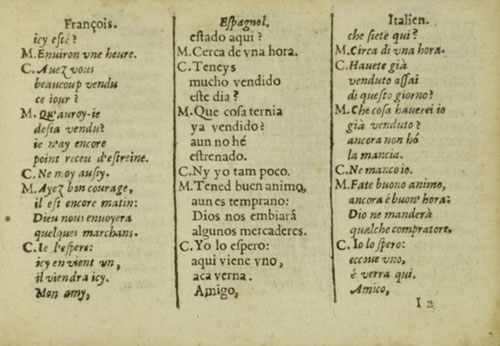 François.
icy esté?
M. Enuiron vne heure.
C. Auez vous
beaucoup vendu
ce iour?
M. Qu'auroy-ie
desia vendu?
ie n'ay encore
point receu d'estreine.
C. Ne moy aussy.
M. Ayez bon courage,
il est encore matin:
Dieu nous enuoyera
quelques marchans.
C. Ie l'espere:
icy en vient vn,
il viendra icy.
Mon amy,
Espagnol.
estado aqui?
M. Cerca de vna hora.
C. Teneys
mucho vendido
este dia?
M. Que cosa ternia
ya vendido?
aun no hé
estrenado.
C. Ny yo tam poco.
M. Tened buen animo,
aun es temprano:
Dios nos embiará
algunos mercaderes.
C. Yo lo espero:
aqui viene vno,
aca verna.
Amigo,
Italien.
che siete qui?
M. Circa di vna hora.
C. Hauete già
venduto assai
di questo giorno?
M. Che cosa hauerei io
già venduto?
ancora non hó
la mancia.
C. Ne manco io.
M. Fate buono animo,
ancora è buon' hora:
Dio ne manderà
qualche compratore.
C. Io lo spero:
eccoue vno,
è verra qui.
Amico,
I 2